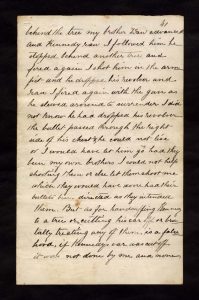 41
behind the tree my brother Dan advanced
and Kennedy ran I followed him he
stopped behind another tree and
fired again I shot him in the arm
pit and he dropped his revolver and
ran I fired again with the gun as
he slewed around to surrender I did
not know he had dropped his revolver
the bullet passed through the right
side of his chest & he could not live
or I would have let him go had they
been my own brothers I could not help
shooting them or else let them shoot me
which they would have done had their
bullets been directed as they intended
them. But as for handcuffing Kennedy
to a tree or cutting his ear off or bru
tally treating any of them is a false
hood, if Kennedys ear was cut off
it was not done by me and none